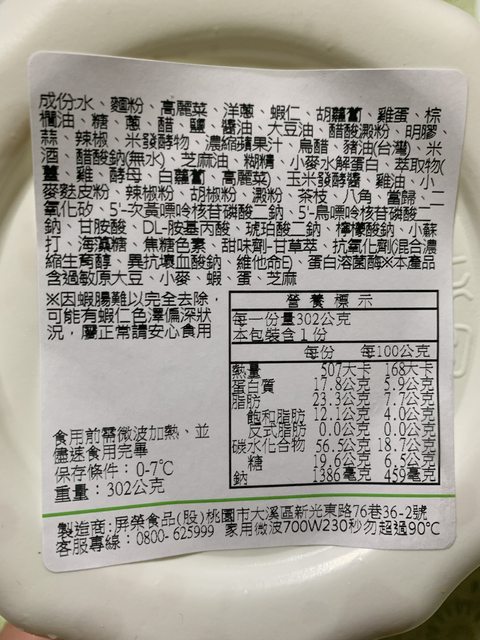 成份水、麵粉、高麗菜、洋蔥、蝦仁、胡蘿蔔、雞蛋、棕
櫚油、糖、蔥、醋、鹽、醬油、大豆油、醋酸澱粉、明膠、
蒜、辣椒、米發酵物、濃縮蘋果汁、烏醋、豬油(台灣)、米
酒、醋酸鈉(無水)、芝麻油、糊精、小麥水解蛋白、萃取物(
薑、雞、酵母、白蘿蔔、高麗菜)、玉米發酵醬、雞油、小
麥麩皮粉、辣椒粉、胡椒粉、澱粉、茶枝、八角、當歸、二
氧化矽、5'-次黃嘌呤核苷磷酸二鈉、5'-鳥嘌呤核苷磷酸二
鈉、甘胺酸、DL-胺基丙酸、琥珀酸二鈉、檸檬酸鈉、小蘇
打、海藻糖、焦糖色素、甜味劑-甘草萃、抗氧化劑(混合濃
縮生育醇、異抗壞血酸鈉、維他命E)、蛋白溶菌酶※本產品
含過敏原大豆、小麥、蝦、蛋、芝麻
※因蝦腸難以完全去除，
可能有蝦仁色澤偏深狀
況，屬正常請安心食用
營養標示
每一份量302公克
本包裝含1份
每份 每100公克
熱量 507大卡 168大卡
蛋白質 17.8公克 5.9公克
脂肪 23.3公克 7.7公克
飽和脂肪 12.1公克 4.0公克
反式脂肪 0.0公克 0.0公克
碳水化合物 56.5公克 18.7公克
糖 19.6公克 6.5公克
鈉 1386毫克 459毫克
食用前需微波加熱、並
儘速食用完畢
保存條件：0-7℃
重量：302公克
製造商:屏榮食品(股)桃園市大溪區新光東路76巷36-2號
客服專線：0800-625999 家用微波700W230秒勿超過90℃